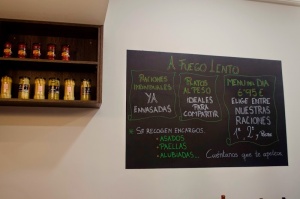 A FUEGO LENTO
RACIONES
INDIVIDUALES
YA
ENVASADAS
PLATOS
AL PESO
IDEALES
PARA
COMPARTIR
MENU DEL DIA
6'95 €
ELIGE ENTRE
NUESTRAS
RACIONES
1º 2º y
SE RECOGEN ENCARGOS
• ASADOS
• PAELLAS
• ALUBIADAS...
Cuéntanos que te apetece